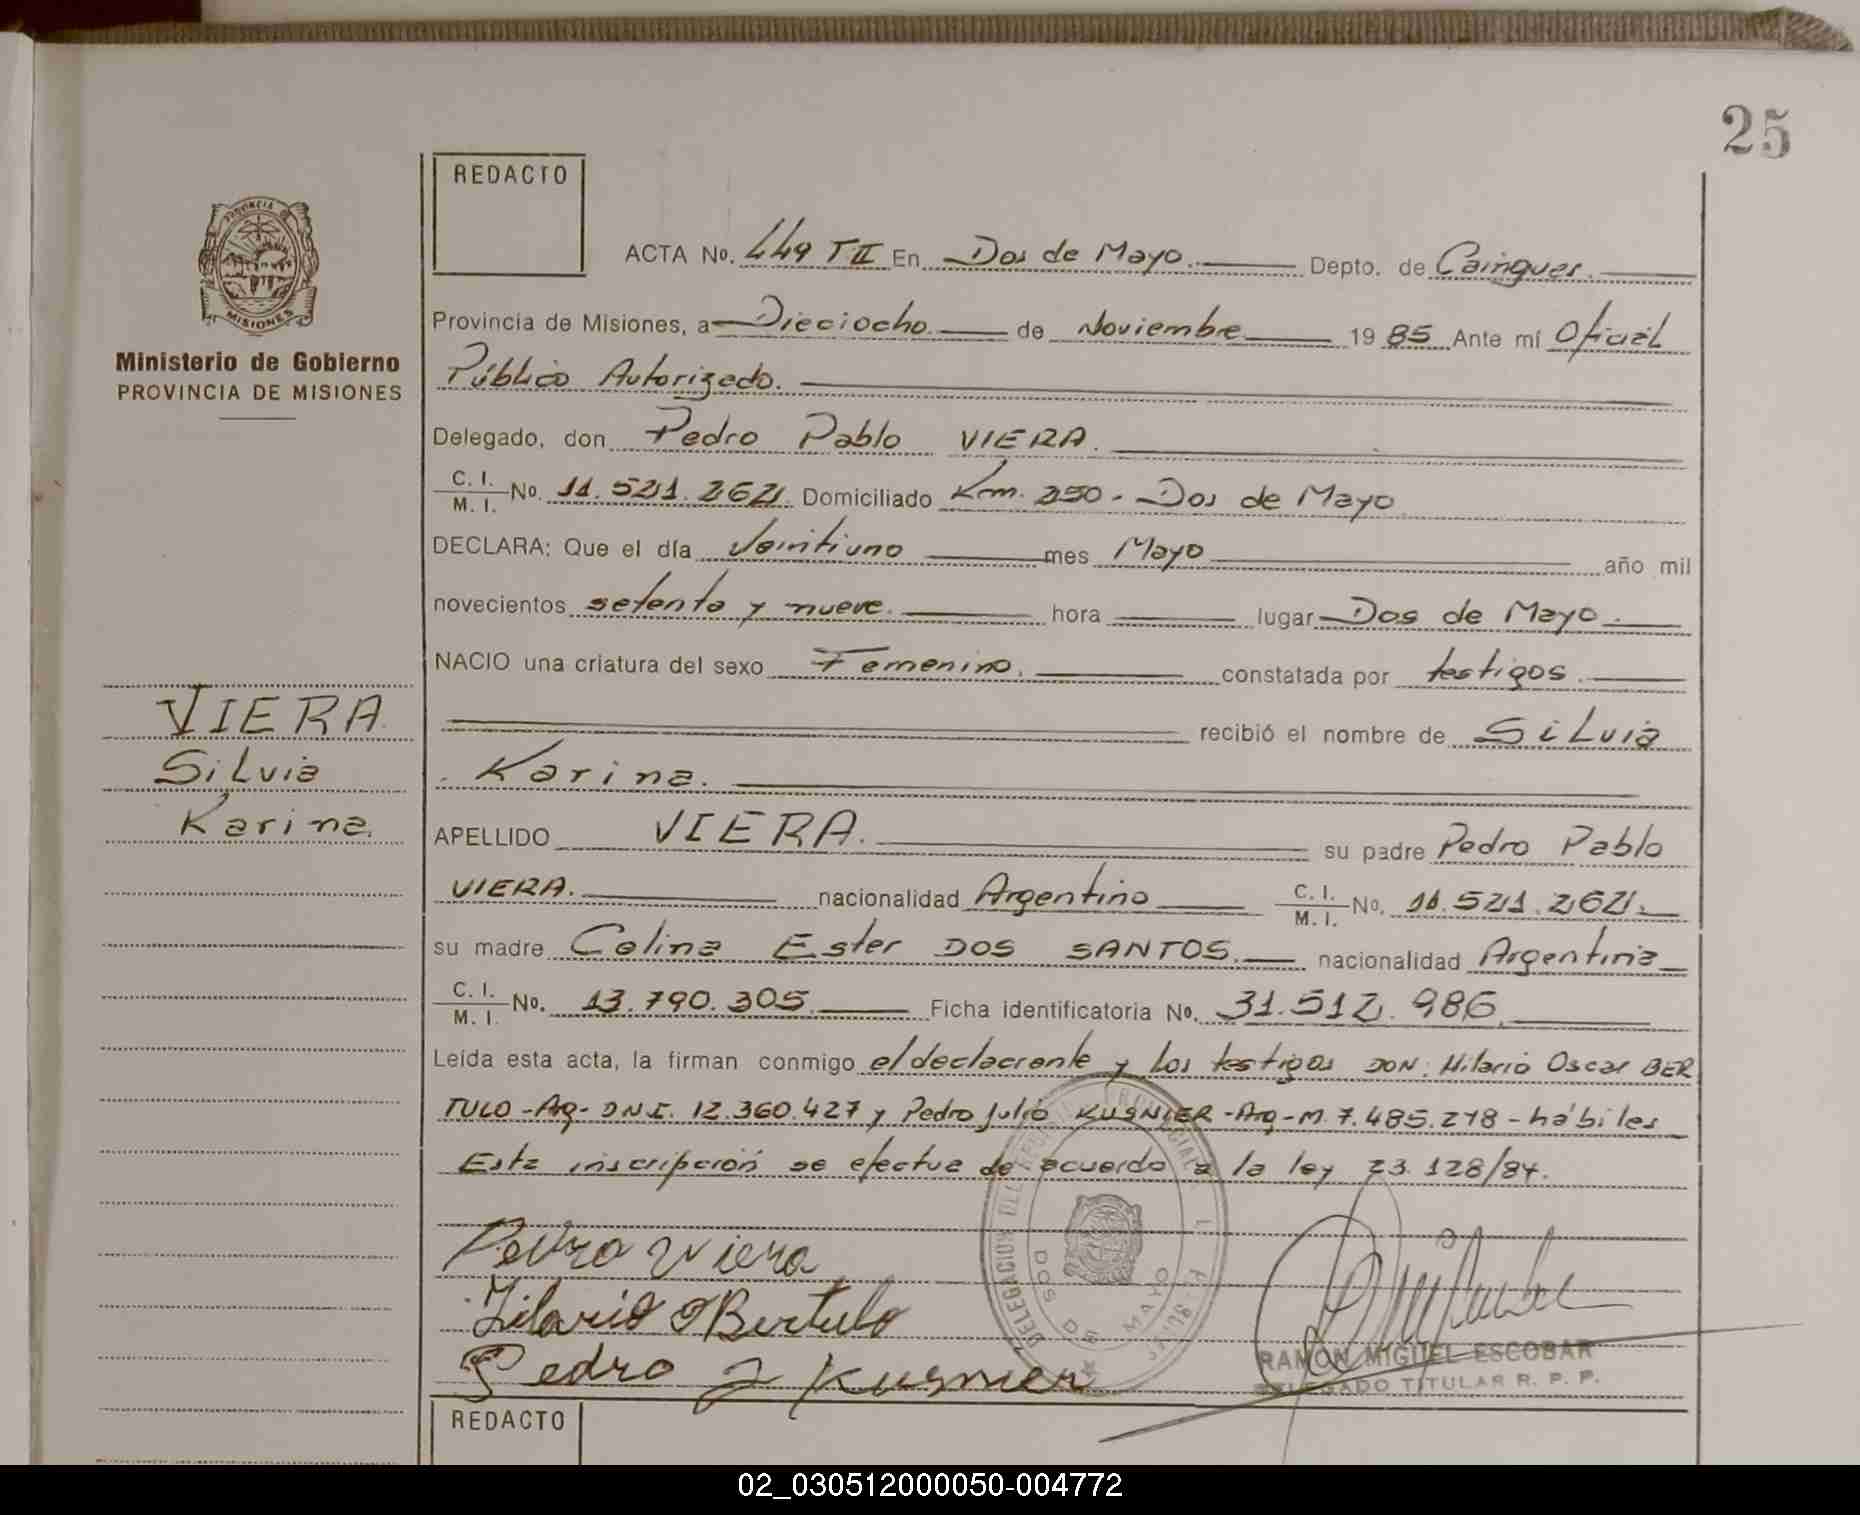 25
REDACTO
PROVINCIA DE
MISIONES
Ministerio de Gobierno
PROVINCIA DE MISIONES
ACTA No. 449 T II En Dos de Mayo. Depto. de Cainguas.
Provincia de Misiones, a Dieciocho. de Noviembre 1985 Ante mí Oficial
Público Autorizado.
Delegado, don Pedro Pablo VIERA.
C. I. / M. I. No. 11.521.262. Domiciliado Km. 250 - Dos de Mayo
DECLARA: Que el día Veintiuno mes Mayo año mil
novecientos setenta y nueve. hora lugar Dos de Mayo.
NACIO una criatura del sexo Femenino. constatada por testigos.
recibió el nombre de Silvia
Karina.
VIERA
Silvia
Karina.
APELLIDO VIERA. su padre Pedro Pablo
VIERA. nacionalidad Argentino C. I. / M. I. No. 11.521.262.
su madre Celina Ester DOS SANTOS. nacionalidad Argentina
C. I. / M. I. No. 13.790.305. Ficha identificatoria No. 31.512.986.
Leída esta acta, la firman conmigo el declarante y los testigos DON: Hilario Oscar BER
TULO - Arg - D.N.I. 12.360.427 y Pedro Julio KUSNIER - Arg - M. 7.485.278 - hábiles
Esta inscripción se efectua de acuerdo a la ley 23.128/84.
Pedro Viera
Hilario O Bertulo
Pedro J Kusnier
DOS DE MAYO
RAMON MIGUEL ESCOBAR
DELEGADO TITULAR R. P. P.
REDACTO
02_030512000050-004772